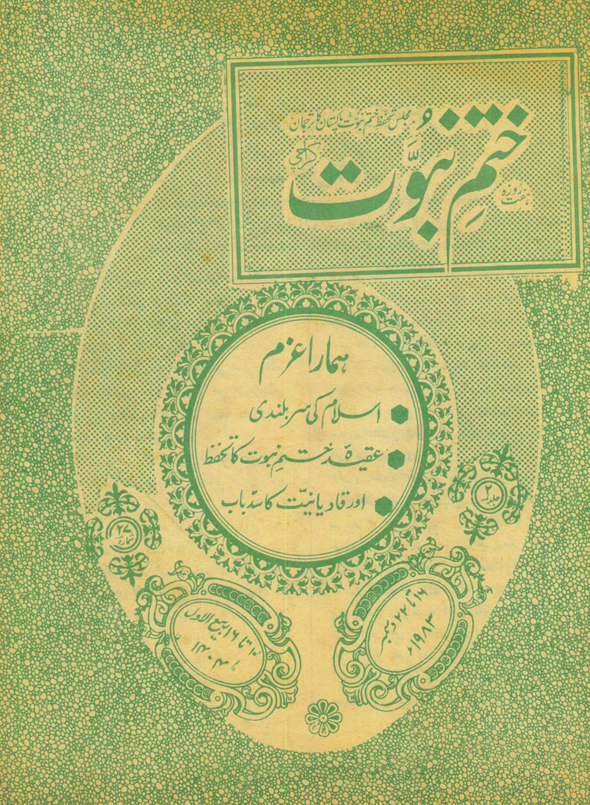 مجلس تحفظ ختم نبوت پاکستان کا ترجمان
ہفت روزہ
ختمِ نبوّت
کراچی
ہمارا عزم
اسلام کی سربلندی
عقیدۂ ختمِ نبوت کا تحفظ
اور قادیانیت کا سدّ باب
جلد ۲
۱۶ تا ۲۲ دسمبر
۱۹۸۳ء
۱۰ تا ۱۶ ربیع الاول
۱۴۰۴ھ